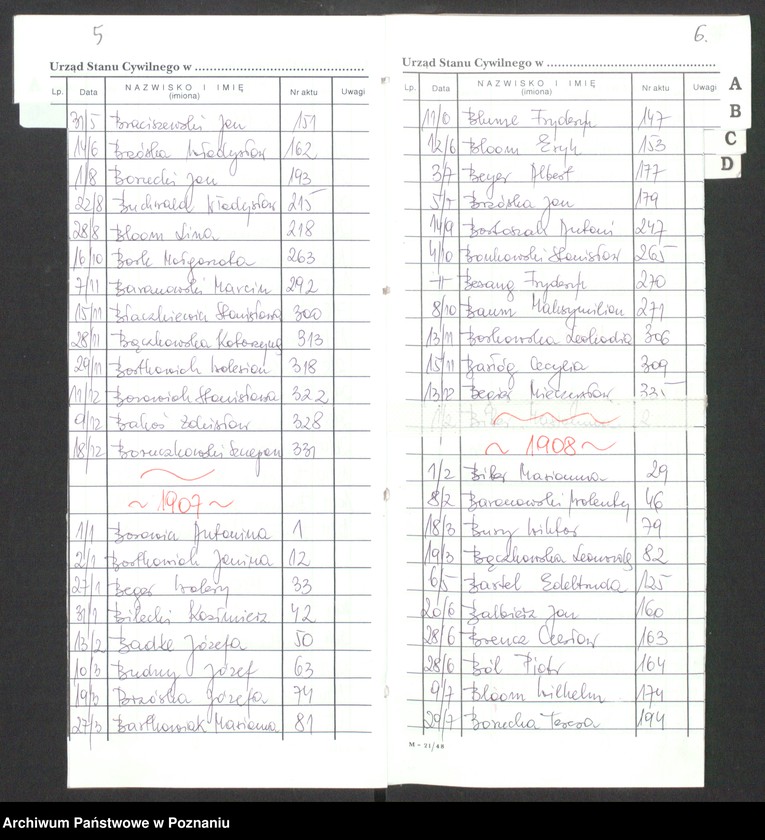 5
Urząd Stanu Cywilnego w
Lp. Data NAZWISKO I IMIĘ (imiona) Nr aktu Uwagi
31/5 Braciszewski Jan 151
14/6 Brzóska Władysław 162
1/8 Borucki Jan 193
22/8 Buchwald Władysław 215
28/8 Bloom Lina 218
16/10 Bork Małgorzata 263
7/11 Baranowski Marcin 292
15/11 Błaczkiewicz Stanisława 300
28/11 Bączkowska Katarzyna 313
29/11 Bartkowiak Walerian 318
11/12 Borowiak Stanisława 322
9/12 Bakoś Zdzisław 328
18/12 Boruczkowski Szczepan 331
~ 1907 ~
1/1 Borowia Antonina 1
2/1 Bartkowiak Janina 12
27/1 Beger Walery 33
31/1 Bilecki Kazimierz 42
13/2 Badke Józefa 50
10/3 Budny Józef 63
19/3 Brzóska Józefa 74
27/3 Bartkowiak Marianna 81
6.
Urząd Stanu Cywilnego w
Lp. Data NAZWISKO I IMIĘ (imiona) Nr aktu Uwagi
A
B
C
D
Blume Fryderyk 147
12/6 Bloom Eryk 153
3/7 Beyer Albert 177
5/7 Brzóska Jan 179
14/9 Bartoszak Antoni 247
4/10 Bronkowski Stanisław 265
-11- Besang Fryderyk 270
8/10 Baum Maksymilian 271
13/11 Borkowska Leokadia 306
15/11 Barłóg Cecylia 309
13/12 Mieczysław 335
~ 1908 ~
1/2 Biber Marianna 29
8/2 Baranowski Walenty 46
18/3 Bury Wiktor 79
19/3 Bączkowska 82
6/5 Bartel Edeltruda 125
20/6 Balbierz Jan 160
28/6 Brenca Czesław 163
28/6 Ból Piotr 164
9/7 Bloom Wilhelm 174
29/7 Borucka Teresa 194
M - 21/48
Archiwum Państwowe w Poznaniu